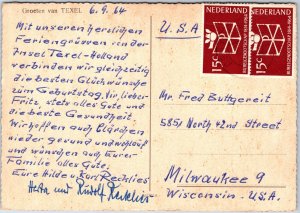 Groeten van TEXEL
6.9.64
Mit unseren herzlichen
Feriengrüssen von der
Insel Texel-Holland
verbinden wir gleichzeitig
die besten Glückwünsche
zum Geburtstag. Dir, lieber
Fritz, stets alles Gute und
die beste Gesundheit.
Wir hoffen auch Clärchen
wieder gesund und wohlauf
und wünschen auch Eurer
Familie alles Gute.
Eure Hilde u. Karl Recklies
und Rudolf Recklies
U.S.A
NEDERLAND
15c
NEDERLAND
15c
Mr. Fred Buttgereit
5851 North 42nd Street
Milwaukee 9
Wisconsin. U.S.A.